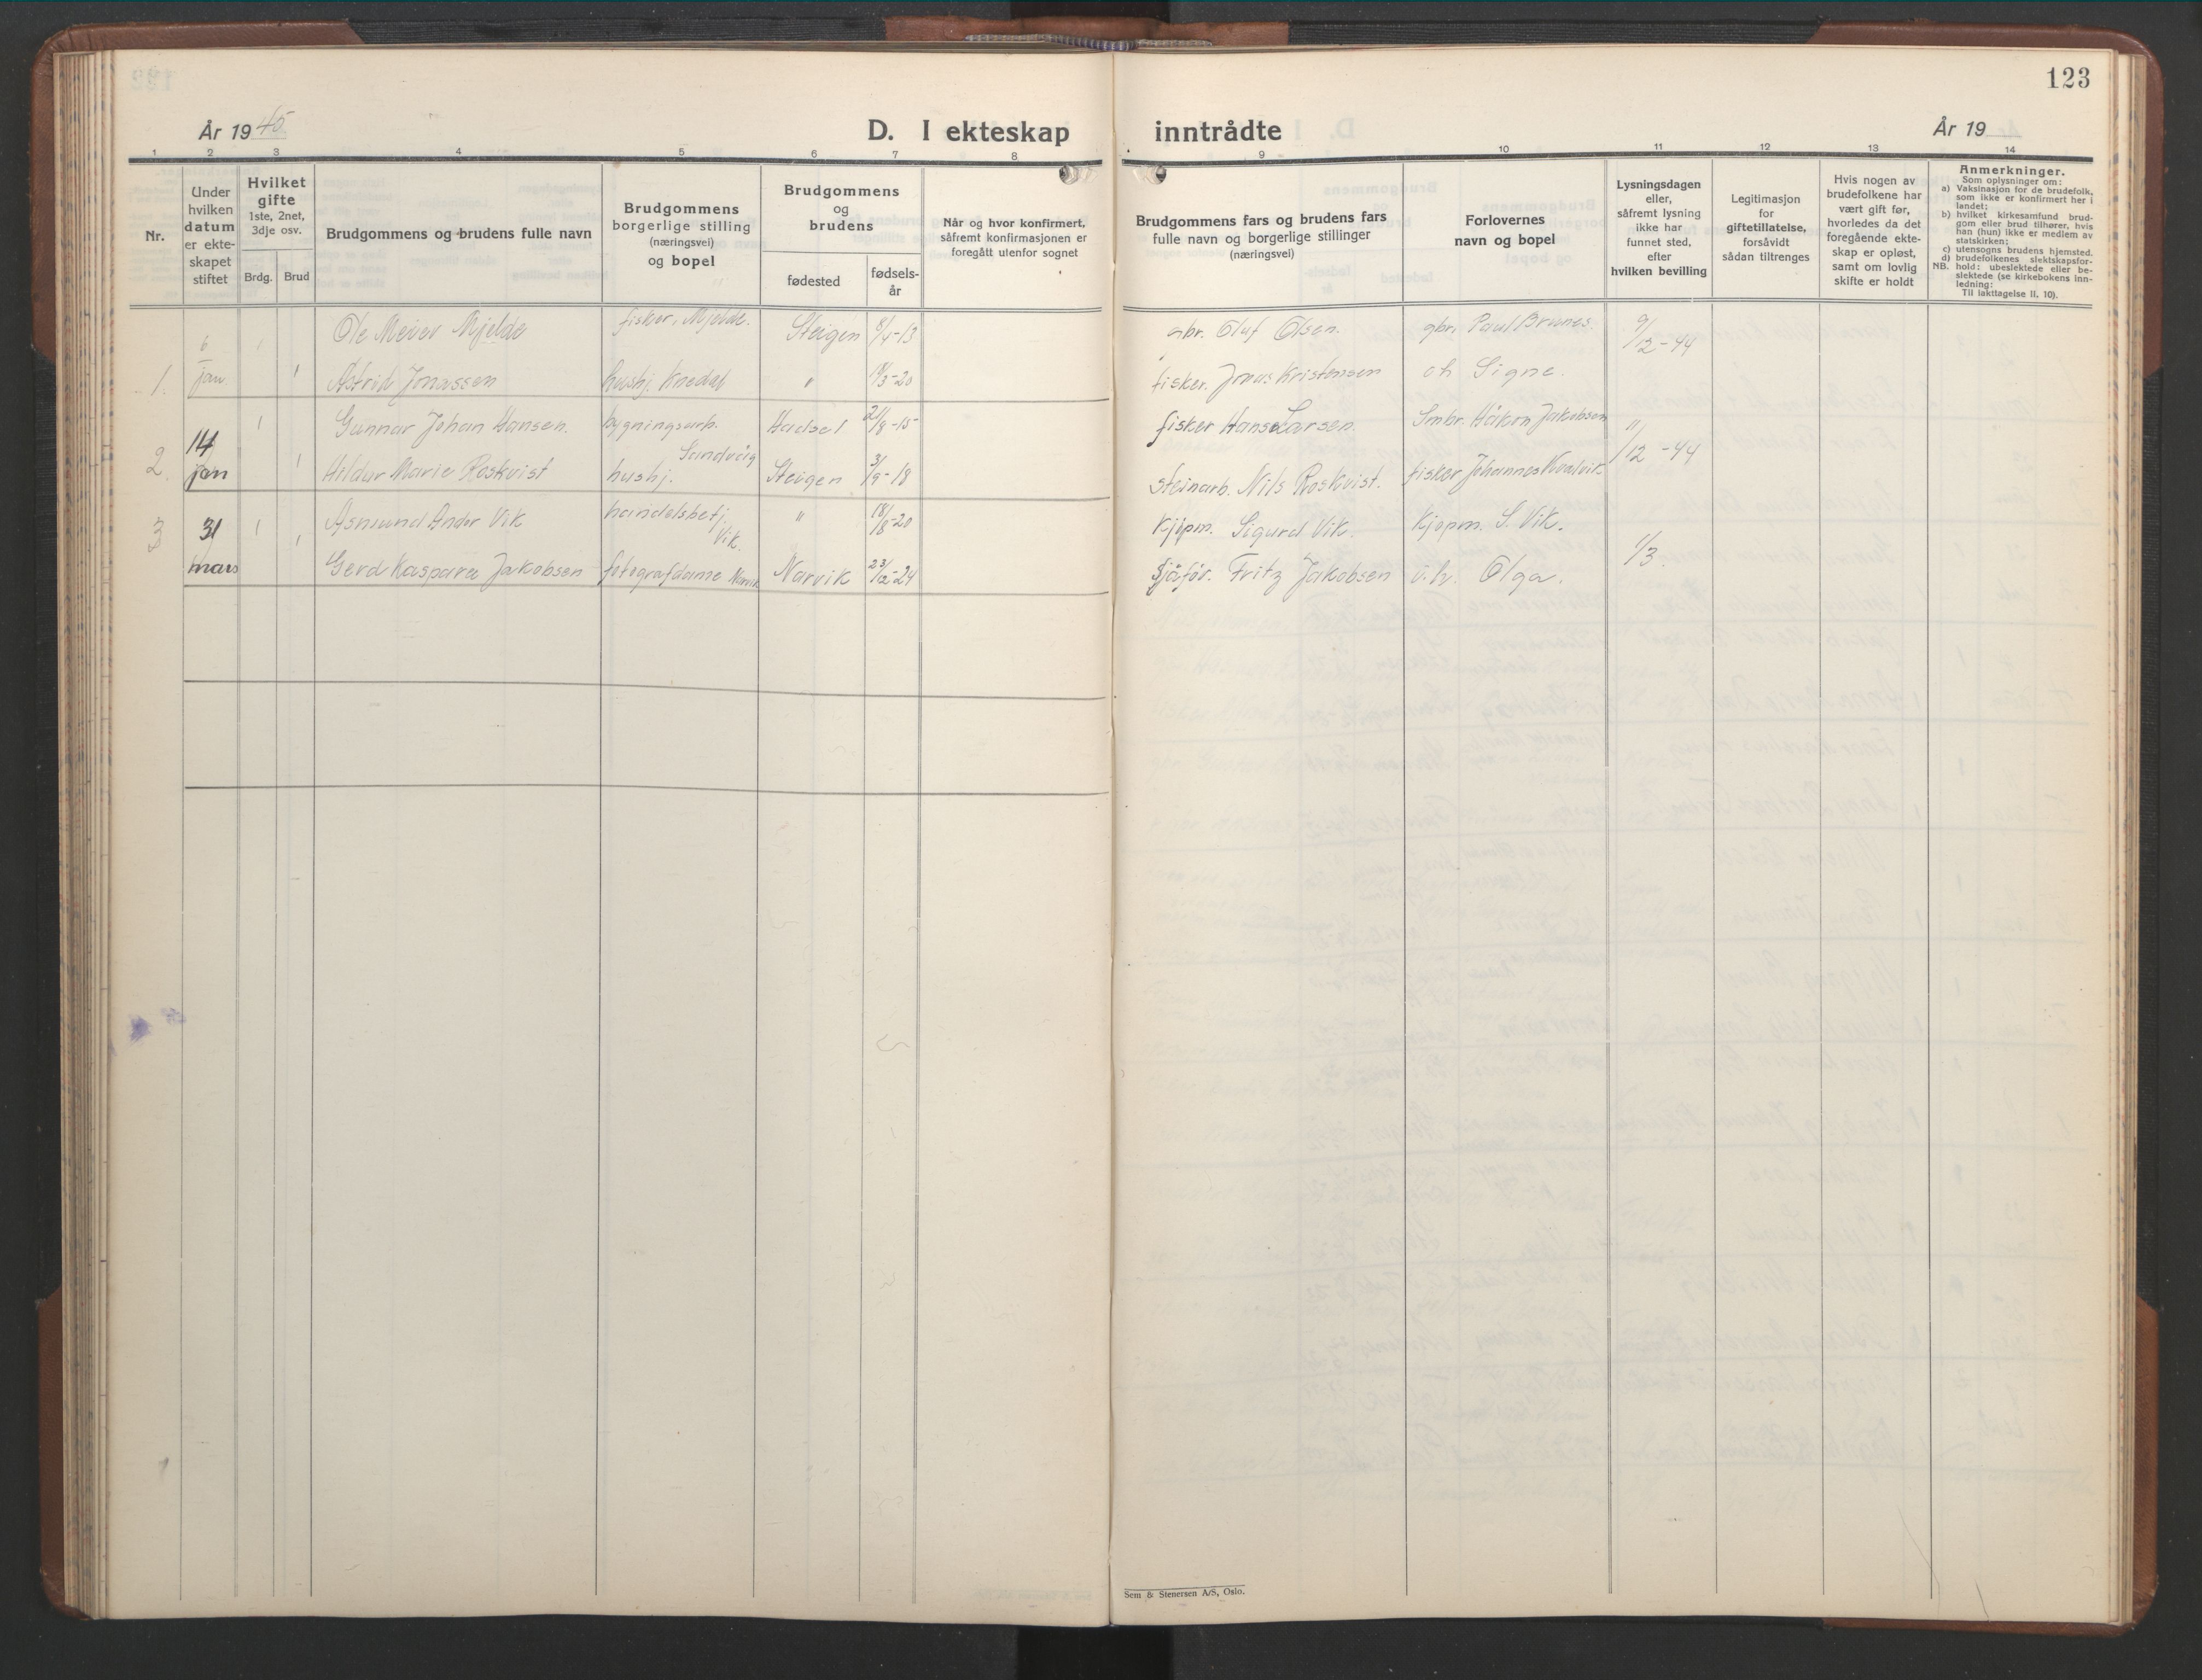 123
År 1945
D. I ekteskap inntrådte
År 19
1 2 3 4 5 6 7 8 9 10 11 12 13 14
Nr.
Under
hvilken
datum
er ekte-
skapet
stiftet
Hvilket
gifte
1ste, 2net,
3dje osv.
Brdg. Brud
Brudgommens og brudens fulle navn
Brudgommens
borgerlige stilling
(næringsvei)
og bopel
Brudgommens
og
brudens
fødested
fødsels-
år
Når og hvor konfirmert,
såfremt konfirmasjonen er
foregått utenfor sognet
Brudgommens fars og brudens fars
fulle navn og borgerlige stillinger
(næringsvei)
Forlovernes
navn og bopel
Lysningsdagen
eller,
såfremt lysning
ikke har
funnet sted,
efter
hvilken bevilling
Legitimasjon
for
giftetillatelse,
forsåvidt
sådan tiltrenges
Hvis nogen av
brudefolkene har
vært gift før,
hvorledes da det
foregående ekte-
skap er opløst,
samt om lovlig
skifte er holdt
Anmerkninger.
Som oplysninger om:
a) Vaksinasjon for de brudefolk,
som ikke er konfirmert her i
landet;
b) hvilket kirkesamfund brud-
gom eller brud tilhører, hvis
han (hun) ikke er medlem av
statskirken;
c) utensogns brudens hjemsted.
d) brudefolkenes slektskapsfor-
NB. hold: ubeslektede eller be-
slektede (se kirkebokens inn-
ledning:
Til iakttagelse II. 10).
6 1 Ole Meier Mjelde fisker, Mjelde. Steigen 8/4-13 gbr. Oluf Olsen. gbr. Paul Brunes. 9/12-44
1. jan. 1 Astrid Jonassen hushj. Knedal " 19/3-20 fisker. Jonas Kristensen oh Signe.
14 1 Gunnar Johan Hansen. bygningsarb. Sandvåg Hadsel 21/8-15 fisker Hans Larsen. Smbr. Håkon Jakobsen "/12-44
2. jan 1 Hildur Marie Roskvist hushj. Steigen 3/9-18 Steinarb. Nils Roskvist. fisker Johannes Kvalvik
3 31 1 Asmund Andor Vik handelsbetj. Vik. " 18/8-20 Kjøpm. Sigurd Vik. Kjøpm. S. Vik. 1/3.
mars 1 Gerd Kaspara Jakobsen fotografdame Narvik Narvik 23/12-24 Sjåfør. Fritz Jakobsen Olga.
Sem & Stenersen A/S, Oslo.